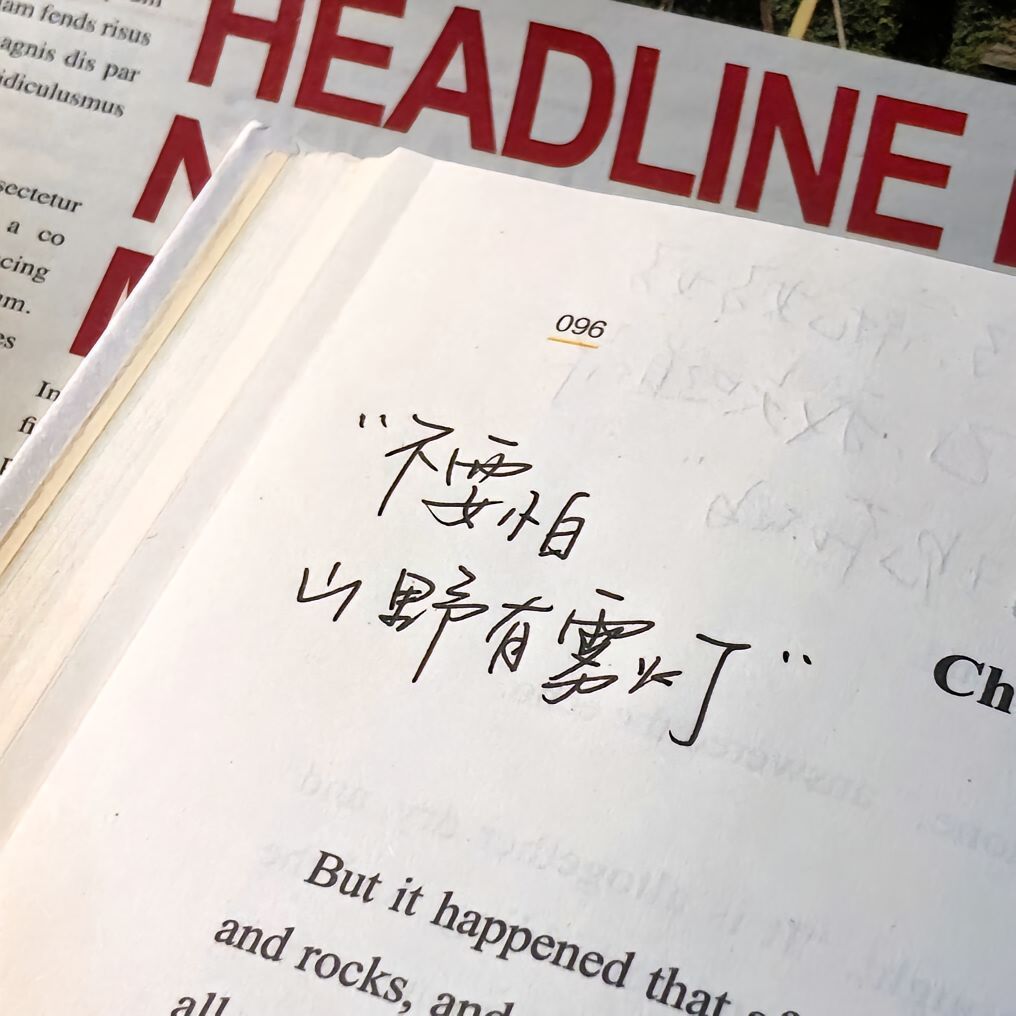 am fends risus
agnis dis par
idiculusmus
sectetur
a co
cing
um.
es
In
fi
HEADLINE
N
096
"不要怕
山野有雾灯"
Ch
But it happened that
and rocks, and
all